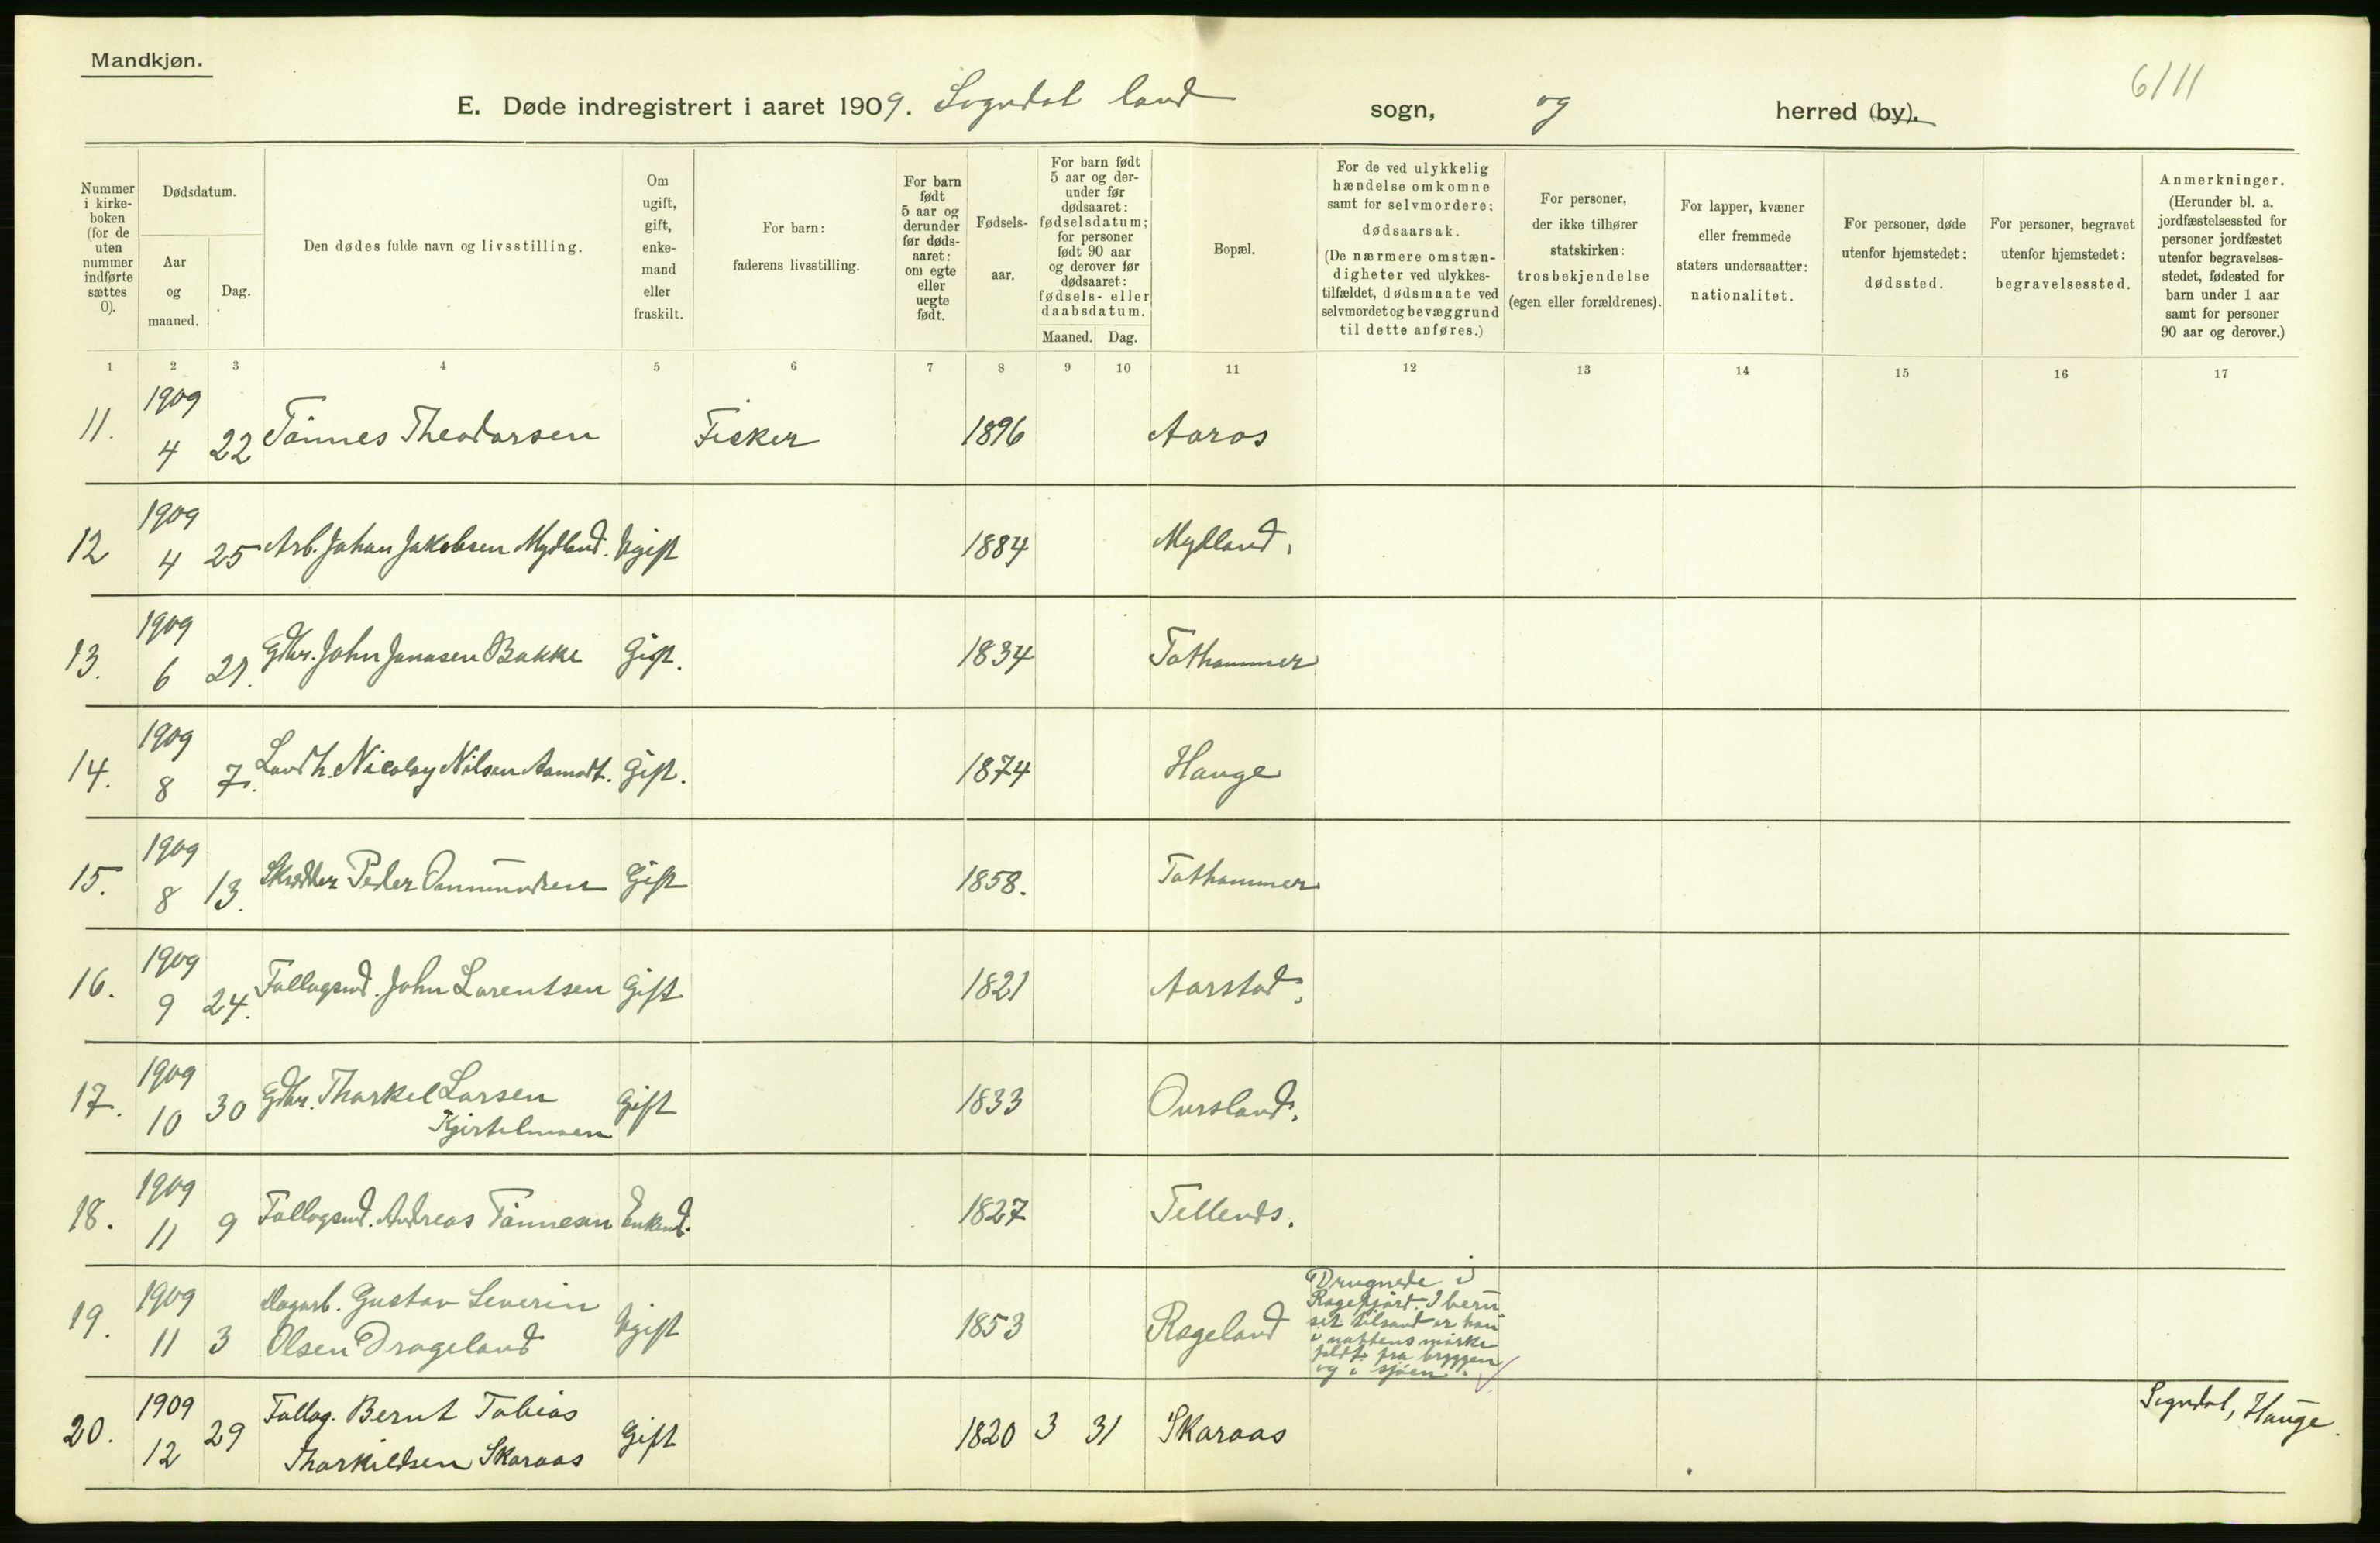 Mandkjøn.
6/11
E. Døde indregistrert i aaret 1909. Sogndal land sogn, og herred (by).
Nummer i kirke-boken (for de uten nummer indførte sættes 0).
Dødsdatum.
Aar og maaned.
Dag.
Den dødes fulde navn og livsstilling.
Om ugift, gift, enke-mand eller fraskilt.
For barn: faderens livsstilling.
For barn født 5 aar og derunder før døds-aaret: om egte eller uegte født.
Fødsels-aar.
For barn født 5 aar og der-under før dødsaaret: fødselsdatum; for personer født 90 aar og derover før dødsaaret: fødsels- eller daabsdatum.
Maaned. Dag.
Bopæl.
For de ved ulykkelig hændelse omkomne samt for selvmordere: dødsaarsak. (De nærmere omstæn-digheter ved ulykkes-tilfældet, dødsmaate ved selvmordet og bevæggrund til dette anføres.)
For personer, der ikke tilhører statskirken: trosbekjendelse (egen eller forældrenes).
For lapper, kvæner eller fremmede staters undersaatter: nationalitet.
For personer, døde utenfor hjemstedet: dødssted.
For personer, begravet utenfor hjemstedet: begravelsessted.
Anmerkninger. (Herunder bl. a. jordfæstelsessted for personer jordfæstet utenfor begravelses-stedet, fødested for barn under 1 aar samt for personer 90 aar og derover.)
1 2 3 4 5 6 7 8 9 10 11 12 13 14 15 16 17
11. 1909 4 22 Tønnes Theodorsen Fisker 1896 Aaros
12 1909 4 25 Arb. Johan Jakobsen Mydland. Ugift 1884 Mydland.
13. 1909 6 21. Gdbr. John Jonasen Bakke Gift. 1834 Tothammer
14. 1909 8 7. Landh. Nicolay Nilsen Aamodt. Gift. 1874 Hauge
15. 1909 8 13. Skrædder Peder Ommundsen Gift 1858. Tothammer
16. 1909 9 24. Follagsmd. John Lorentsen Gift 1821 Aarstad.
17. 1909 10 30 Gdbr. Thorkel Larsen Gift 1833 Oursland.
Kjirtelmoen
18. 1909 11 9 Follagsmd. Andreas Tønnesen Enkemd. 1827 Tellends.
19. 1909 11 3 Dagarb. Gustav Severin
Olsen Drageland Ugift 1853 Rageland
Drugnede i
Ragefjord. I beru
set tilstand er han
i nattens mørke
faldt fra bryggen
og i sjøen.
20. 1909 12 29 Follag. Bernt Tobias
Thorkildsen Skaraas Gift 1820 3 31 Skaraas Sogndal, Hauge.